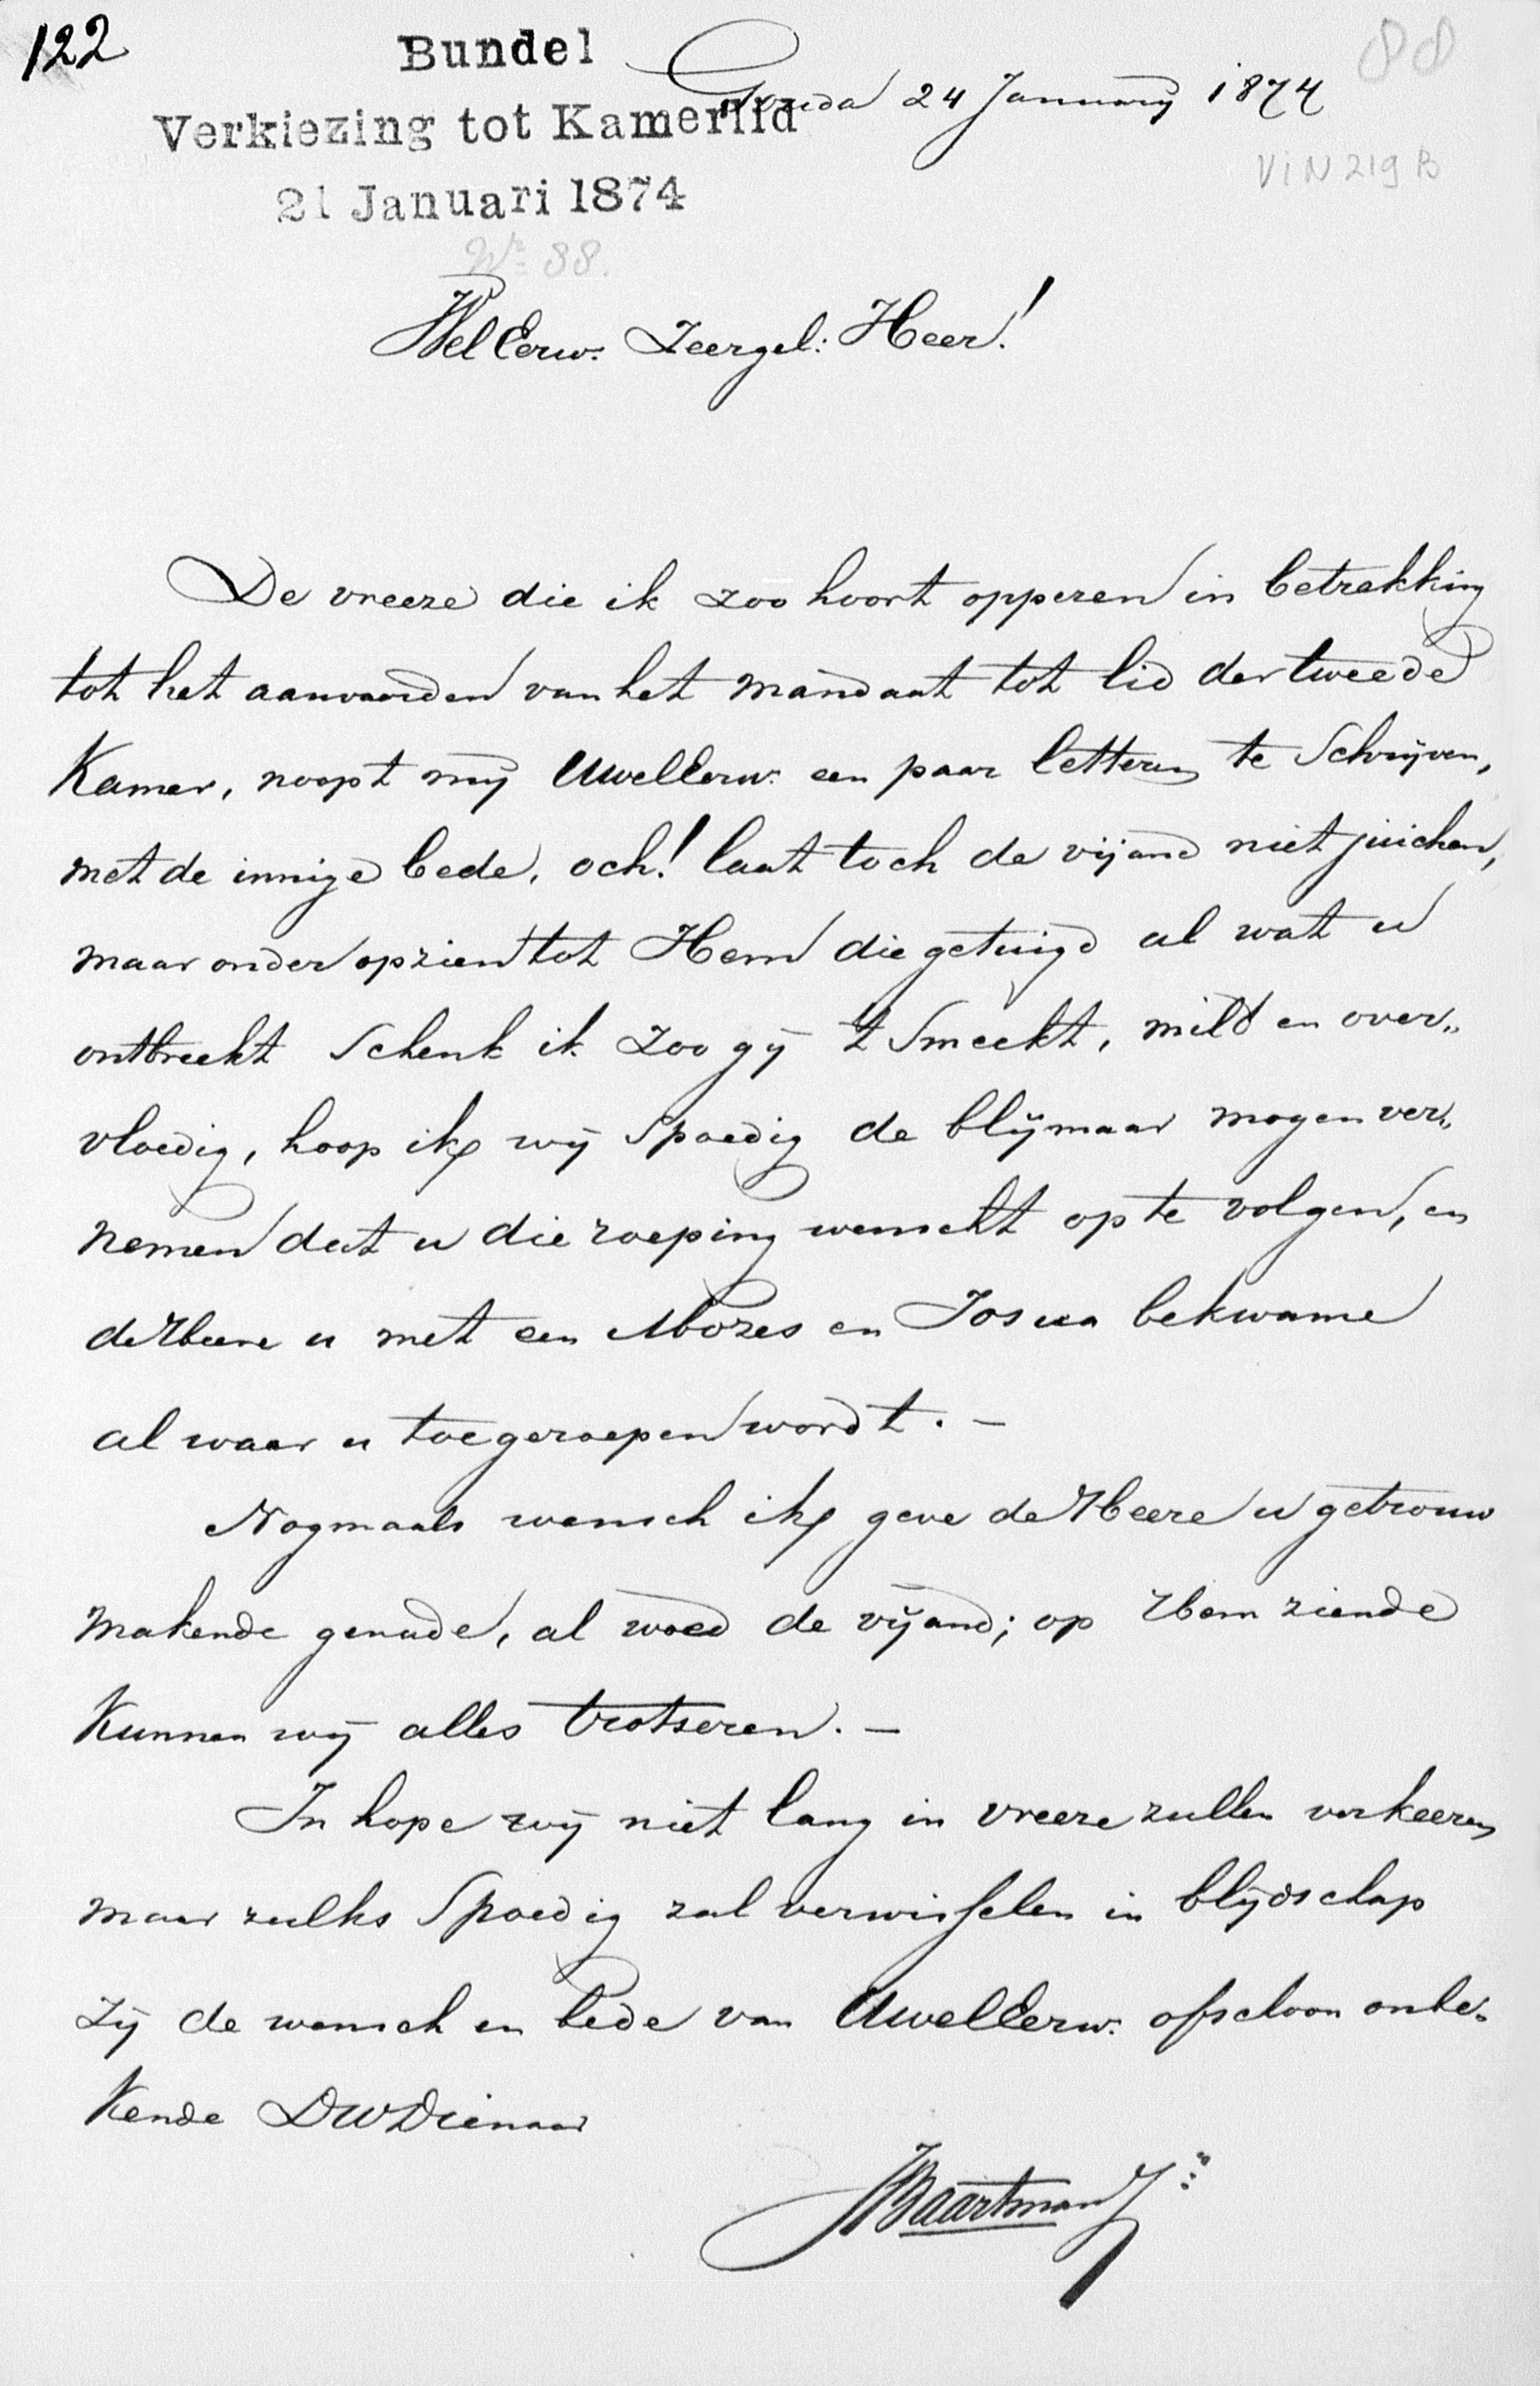 122
Bundel
Verkiezing tot Kamerlid
21 Januari 1874
Gouda 24 January 1874
88
VIN 219 B
No 88.
Wel Eerw. Zeergel: Heer!
De vreeze die ik zoo hoort opperen in betrekking
tot het aanvaarden van het mandaat tot lid der tweede
Kamer, noopt mij UwelEerw: een paar letteren te Schrijven,
met de innige bede, och! laat toch de vijand niet juichen,
maar onder opzien tot Hem die getuigd al wat u
ontbreekt Schenk ik zoo gij 't Smeekt, mild en over„
vloedig, hoop ik wij Spoedig de blijmaar mogen ver„
nemen dat u die roeping wenscht op te volgen, en
de Heere u met een Mozes en Josua bekwame
al waar u toegeroepen wordt. –
Nogmaals wensch ik geve de Heere u getrouw
makende genade, al woed de vijand; op Hem ziende
Kunnen wij alles trotseren. –
In hope wij niet lang in vreeze zullen verkeeren
maar zulks Spoedig zal verwisselen in blijdschap
zij de wensch en bede van UwelEerw: ofschoon onbe-
kende DWDienaar
JBaartman Jz: